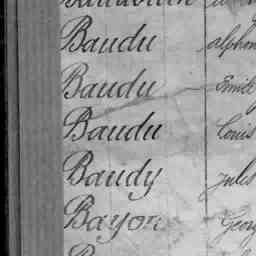 Baudu Alphon
Baudu Emile
Baudu Louis
Baudy Jules
Bayon Georg